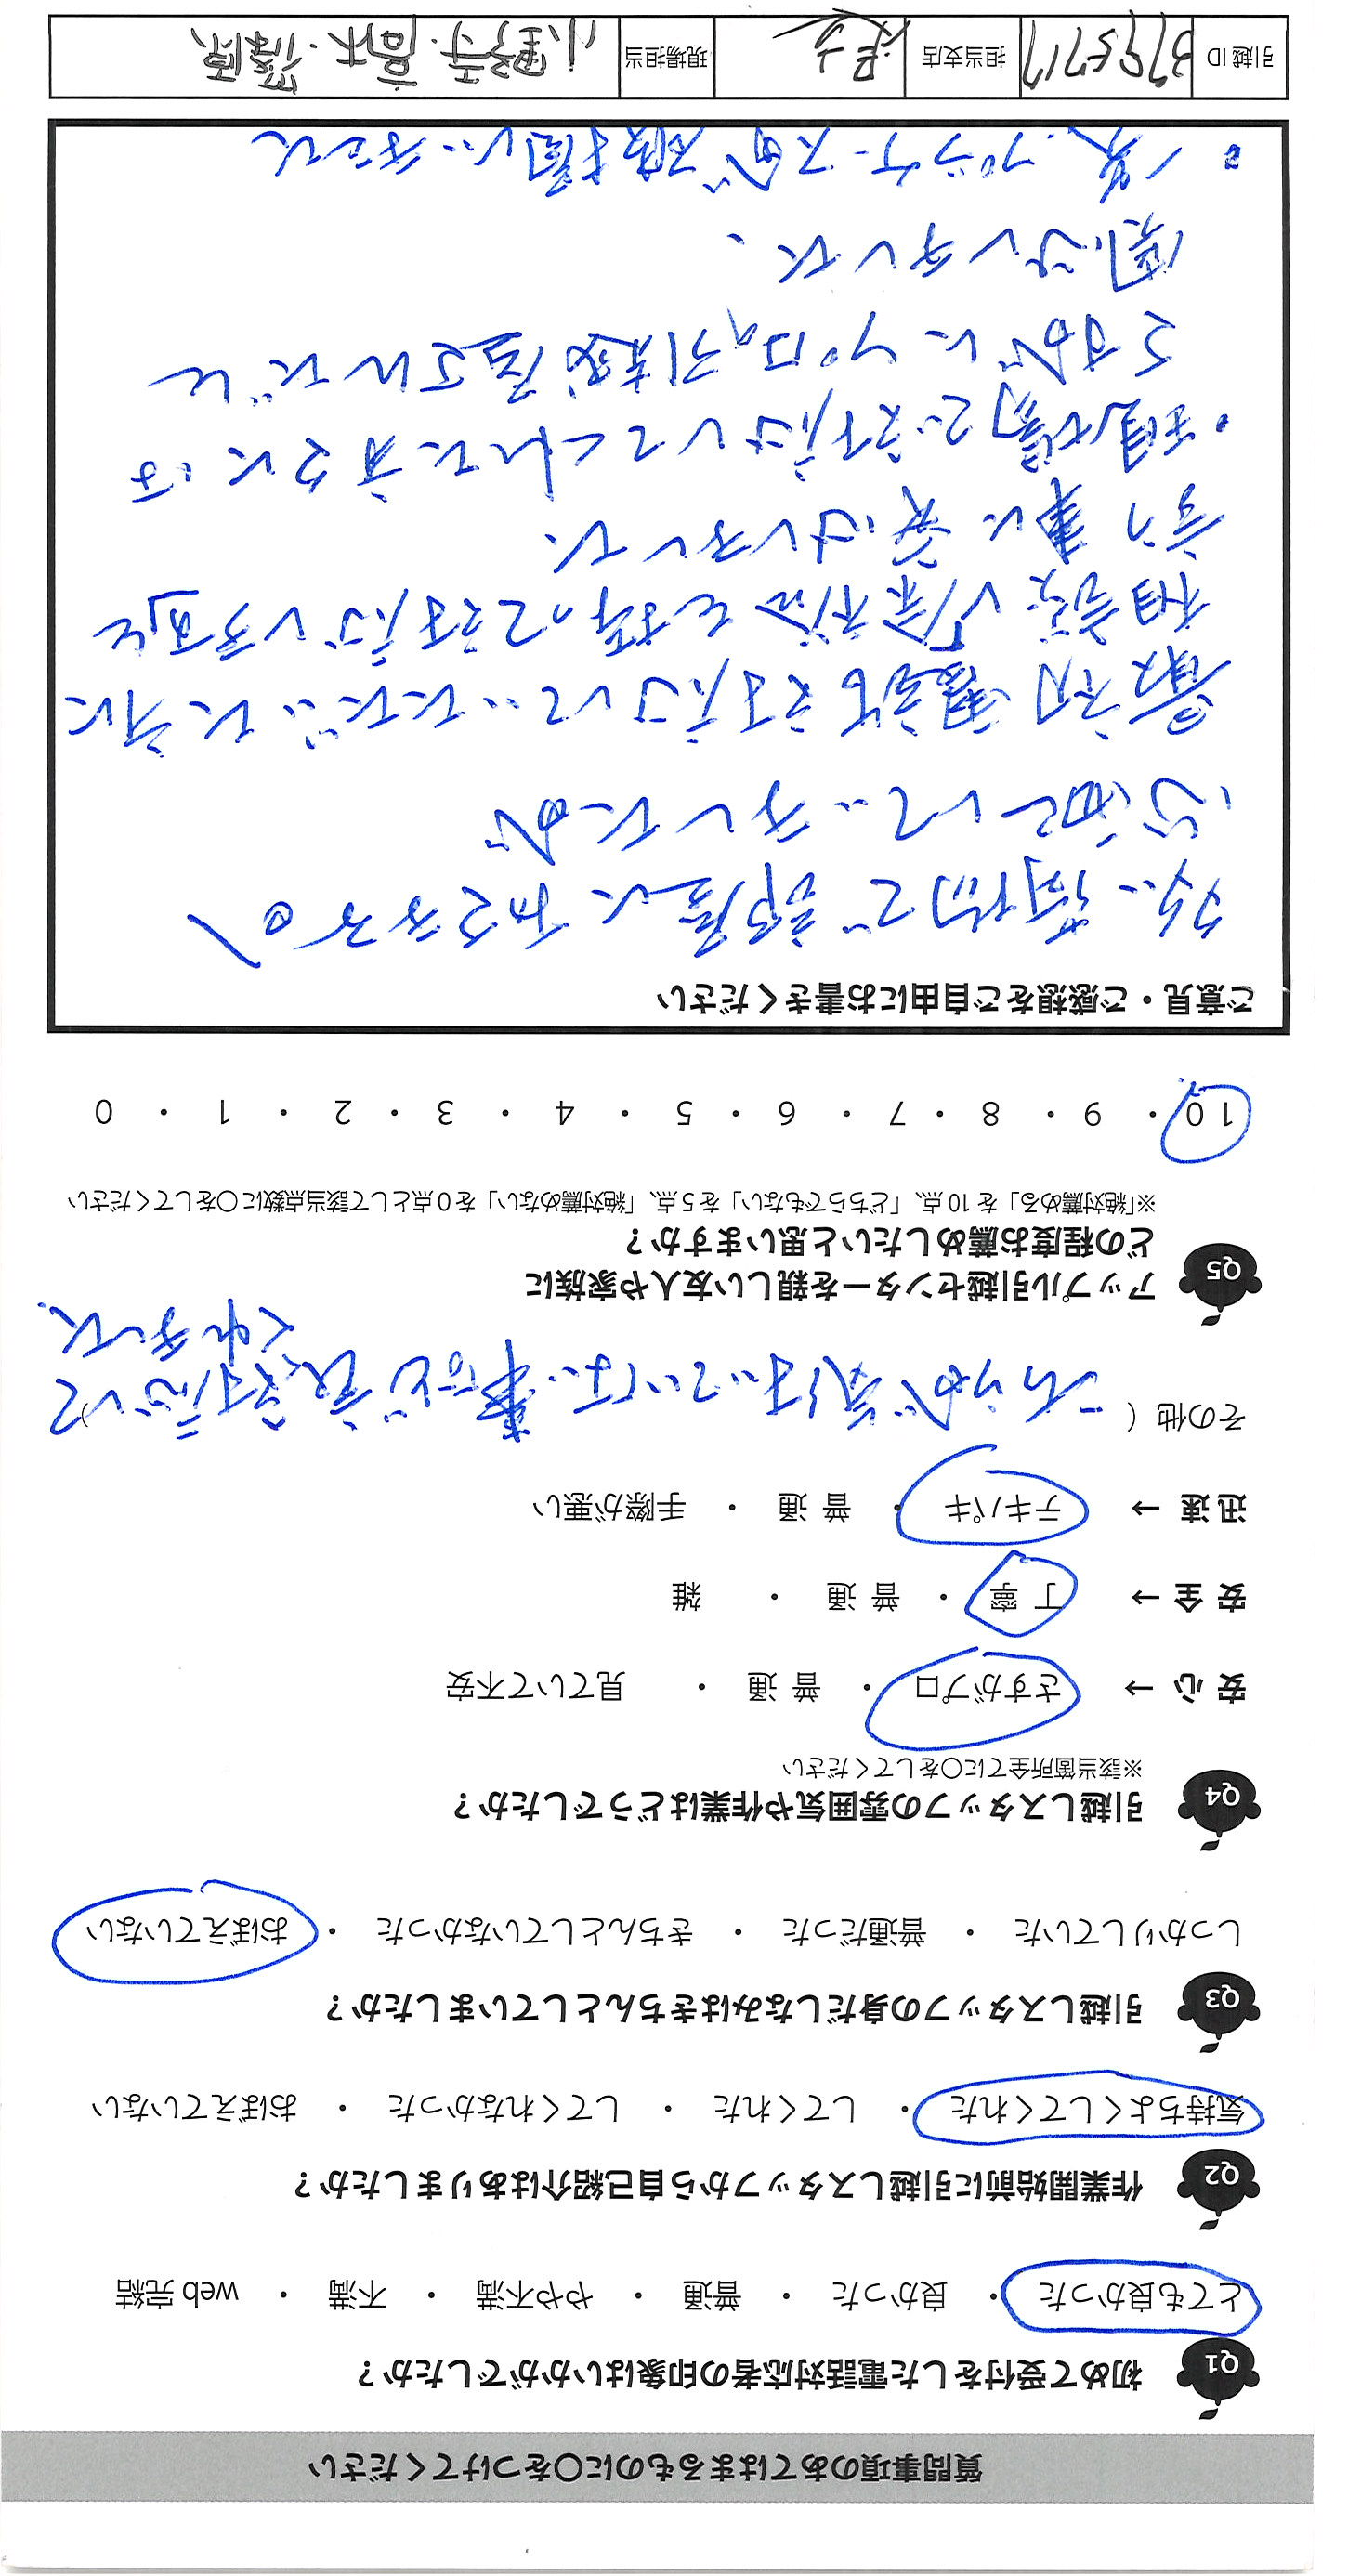 質問事項のあてはまるものに○をつけてください
Q1 初めて受付をした電話対応者の印象はいかがでしたか？
とても良かった ・ 良かった ・ 普通 ・ やや不満 ・ 不満 ・ web 完結
Q2 作業開始前に引越しスタッフから自己紹介はありましたか？
気持ちよくしてくれた ・ してくれた ・ してくれなかった ・ おぼえていない
Q3 引越しスタッフの身だしなみはきちんとしていましたか？
しっかりしていた ・ 普通だった ・ きちんとしていなかった ・ おぼえていない
Q4 引越しスタッフの雰囲気や作業はどうでしたか？
※該当箇所全てに○をしてください
安 心 → さすがプロ ・ 普 通 ・ 見ていて不安
安 全 → 丁 寧 ・ 普 通 ・ 雑
迅 速 → テキパキ ・ 普 通 ・ 手際が悪い
その他 ( こちらが気付いていない事など良く対応して
くれました。
Q5 アップル引越センターを親しい友人や家族に
どの程度お薦めしたいと思いますか？
※「絶対薦める」を 10 点、「どちらでもない」を 5 点、「絶対薦めない」を 0 点として該当点数に○をしてください
10 ・ 9 ・ 8 ・ 7 ・ 6 ・ 5 ・ 4 ・ 3 ・ 2 ・ 1 ・ 0
ご意見・ご感想をご自由にお書きください
多い荷物で部屋に和できるの
心配していましたが
最初電話で対応していただいた方に
相談し「余裕を持って対応します」と
言う事に安心しました
・現場で対応してくれた方々には
さすがにプロの引越屋さんだと
関心しました、
・ハンガーケースが 間い
引越 ID 3795717 担当支店 埼玉 現場担当 小野寺・高木・篠原